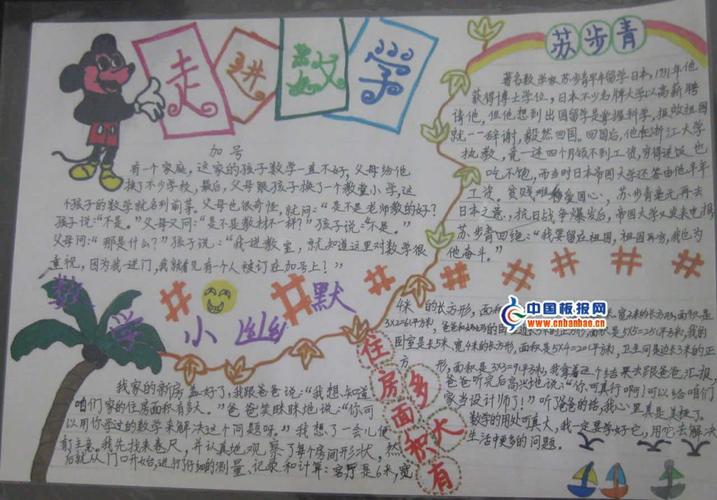 走进数学
苏步青
加号
有一个家庭，这家的孩子数学一直不好，父母给他
换了不少学校，最后，父母跟孩子换了一个教堂小学，这
个孩子的数学就名列前茅。父母也很奇怪，就问：“是不是老师教的好？
孩子说“不是。”父母又问：“是不是教材不一样？”孩子说：“不是。”
父母问：“那是什么？”孩子说：“我一进教室，就知道这里对数学很
重视，因为我一进门，我就看见有一个人被订在加号上？”
著名数学家苏步青早年留学日本，1931年他
获得博士学位，日本不少名牌大学以高薪聘
请他，但他想到出国留学是掌握科学，报效祖国
就一一辞谢，毅然回国。回国后，他在浙江大学
执教，竟一连四个月领不到工资，穷得连饭也
吃不饱，而当时日本帝国大学还答应他半年
工资。贫贱难移爱国心，苏步青毫无再去
日本之意、抗日战争爆发后，帝国大学又发来电报
苏步青回绝：“我要留在祖国，祖国再穷，我也为
他奋斗。”
数学小幽默
住房面积有多大
我家的新房盖好了，我跟爸爸说：“我想知道
咱们家的住房面积有多大。”爸爸笑眯眯地说：“你可
以用你学过的数学来解决这个问题呀。”我想了一会儿便
有了主意。我先找来卷尺，并认真地观察了每个房间形状，然
后就从门口开始，进行仔细的测量、记录和计算：客厅是6米，宽
4米的长方形，面积
中国板报网
www.cnbanbao.cn
宽2米的长方形，面积是
3X2=6(平方米)，
面积是5X5=25(平方米)，我的
卧室是长5米，宽4米的长方形，面积是5X4=20(平方米)，卫生间是边长3米的正
方形，面积是3X3=9(平方米)，我拿着这个结果去跟爸爸汇报，
爸爸听完后高兴地说：“你可真行啊！可以给咱们
家当设计师了！”听了爸爸的话，我心里真是美极了。
数学的用处可真大，我一定要学好它，用它去解决
生活中更多的问题。